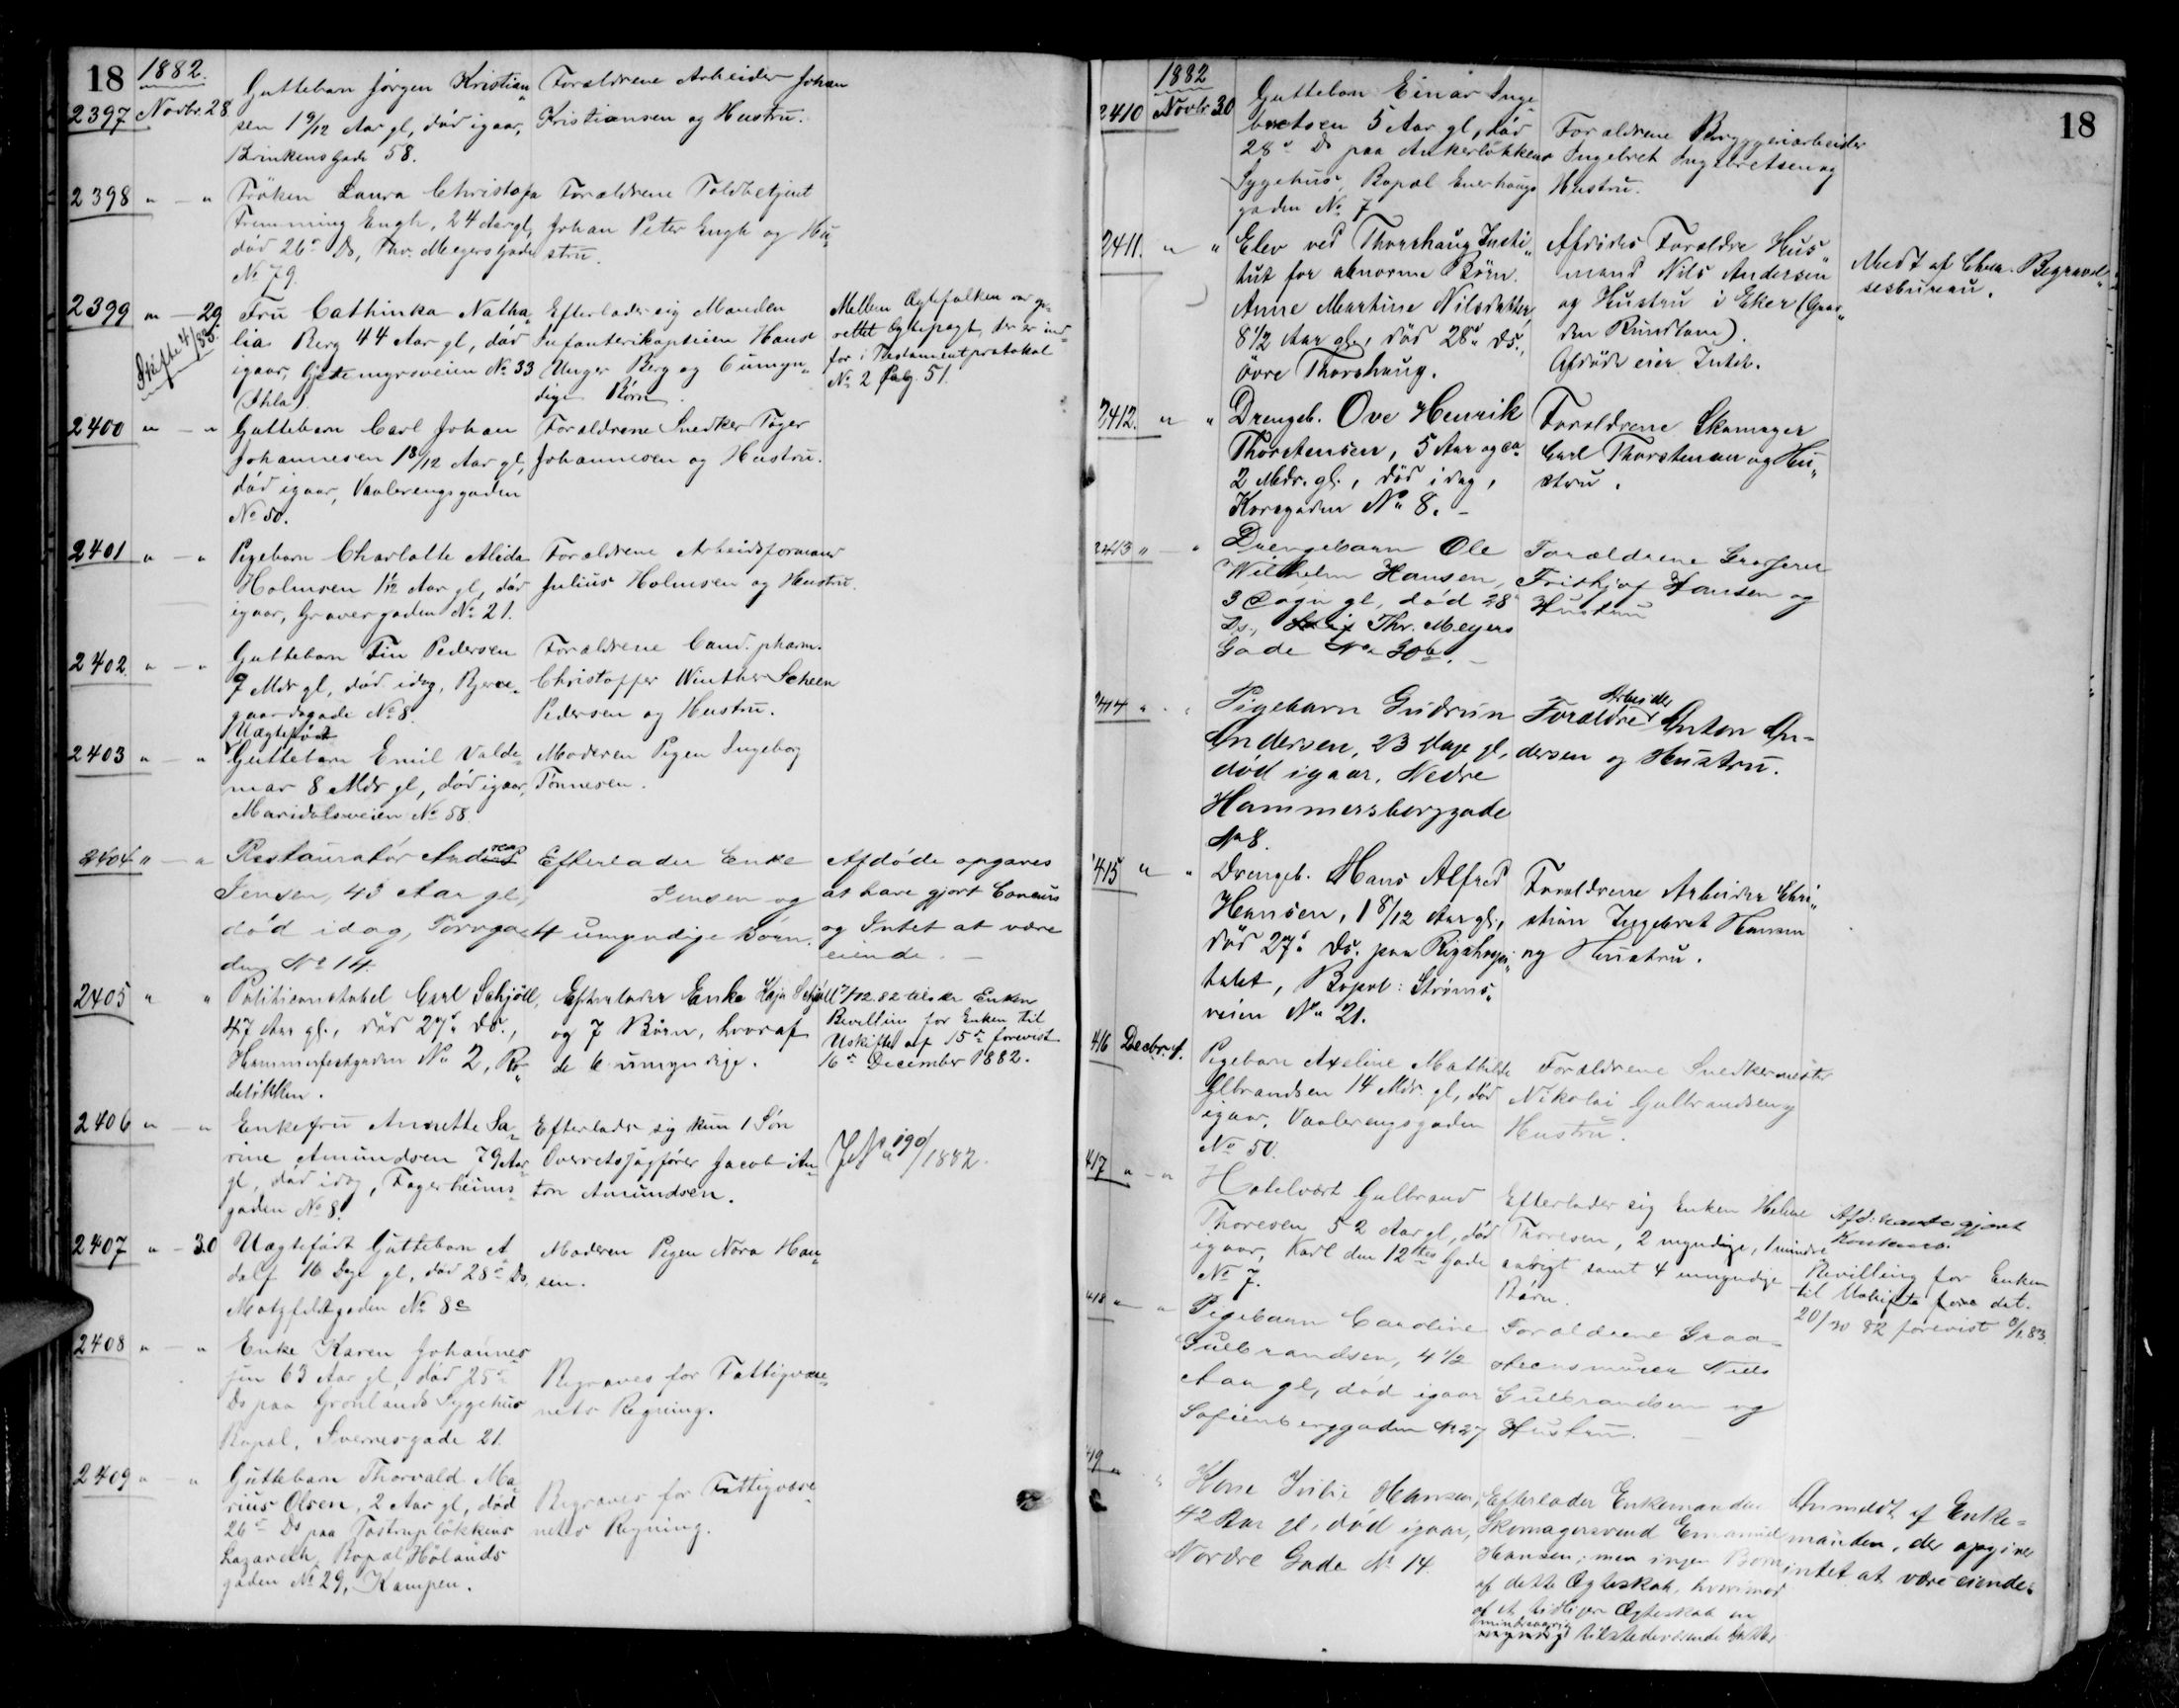 18 1882.
2397 Novbr. 28
Guttebarn Jørgen Kristian„
sen 1 9/12 Aar gl, død igaar,
Brinkens Gade 58.
Forældrene Arbeider Johan
Kristiansen og Hustru.
2398 „ — „
Frøken Laura Christofa
Fremming Engh, 24 Aar gl,
død 26de Ds, Thv. Meyers Gade
No 79.
Forældrene Toldbetjent
Johan Peter Engh og Hu„
stru.
2399 „ — 29.
Skifte 4/1 83.
Fru Cathinka Natha„
lia Berg 44 Aar gl, død
igaar, Gjetemyrsveien No 33
(Ihla).
Efterlader sig Manden
Infanterikaptein Hans
Unger Berg og 6 umyn„
dige Børn.
Mellem Ægtefolken var op„
rettet Ægtepagt, der er ind„
før i Testamentprotokol
No 2 Pag. 51.
2400 „ — „
Guttebarn Carl Johan
Johannesen 1 8/12 Aar gl,
død igaar, Vaalerengsgaden
No 50.
Forældrene Snedker Tager
Johannesen og Hustru.
2401 „ — „
Pigebarn Charlotte Alida
Holmsen 1 1/12 Aar gl, død
igaar, Gravergaden No 21.
Forældrene Arbeidsformand
Julius Holmsen og Hustru.
2402 „ — „
Guttebarn Finn Pedersen
9 Mdr gl, død idag, Bjerre„
gaardsgade No 8.
Forældrene Cand. pharm.
Christoffer Winther Scheen
Pedersen og Hustru.
2403 „ — „
Uægtefødt
Guttebarn Emil Valde„
mar 8 Mdr gl, død igaar,
Maridalsveien No 58.
Moderen Pigen Ingeborg
Tønnesen.
2404 „ — „
Restauratør Andreas
Jensen, 43 Aar gl,
død idag, Torvga„
den No 14.
Efterlader Enke
Jensen og
4 umyndige Børn.
Afdøde opgaves
at have gjort Concurs
og Intet at være
eiende. —
2405 „ „
Politiconstabel Carl Schjøll,
47 Aar gl., død 27de ds.,
Hammerfestgaden No 2, Ro„
deløkken.
Efterlader Enke Kaja Schjøll
og 7 Børn, hvoraf
de 6 umyndige.
7/12. 82 tilskr. Enken
Bevilling for Enken til
Uskifte af 15de forevist
16de December 1882.
2406 „ — „
Enkefru Annette Sa„
rine Amundsen 79 Aar
gl, død idag, Fagerheims„
gaden No 8.
Efterlader sig kun 1 Søn
Overretssagfører Jacob An„
ton Amundsen.
J No 190/1882.
2407 „ — 30
Uægtefødt Guttebarn A„
dolf 16 Dage gl, død 28de Ds,
Motzfeldtgaden No 8c
Moderen Pigen Nora Han„
sen.
2408 „ — „
Enke Karen Johannes„
sen 63 Aar gl, død 25de
Ds paa Grønlands Sygehus
Bopæl, Sverresgade 21.
Begraves for Fattigvæse„
nets Regning.
2409 „ — „
Guttebarn Thorvald Ma„
rius Olsen, 2 Aar gl, død
26de Ds paa Tostrupløkkens
Lazareth, Bopæl Hølands
gaden No 29, Kampen.
Begraves for Fattigvæse„
nets Regning.
1882 18
2410 Novbr 30
Guttebarn Einar Inge„
bretsen 5 Aar gl, død
28de Ds paa Ankerløkkens
Sygehus, Bopæl Enerhaugs
gaden No 7
Forældrene Bryggeriarbeider
Ingebret Ingebretsen og
Hustru.
2411. „ „
Elev ved Thorshaug Insti„
tut for abnorme Børn.
Anne Martine Nilsdatter,
8 1/2 Aar gl., død 28de ds.,
Øvre Thorshaug.
Afdødes Forældre Hus„
mand Nils Andersen
og Hustru i Eker (Gaar„
den Rundtom).
Afdøde eier Intet.
Medt af Chra. Begravel„
sesbureau.
2412. „ „
Drengeb. Ove Henrik
Thorstensen, 5 Aar og ca
2 Mdr. gl., død idag,
Korsgaden No 8. –
Forældrene Skomager
Carl Thorstensen og Hu„
stru.
2413 „ — „
Drengebarn Ole
Wilhelm Hansen,
3 Dage gl, død 28de
Ds., Thv. Meyers
Gade No 30b. –
Forældrene Grosserer
Frithjof Hansen og
Hustru
2414 „ „
Pigebarn Gudrun
Andersen, 23 Dage gl,
død igaar, Nedre
Hammersborggade
No 8.
Forældre Arbeider Anton An-
dersen og Hustru.
415 „ „
Drengeb. Hans Alfred
Hansen, 1 8/12 Aar gl.,
død 27de ds. paa Rigshospi„
talet, Bopæl: Strøms„
veien No 21.
Forældrene Arbeider Chri„
stian Ingebret Hansen
og Hustru.
416 Decbr. 1.
Pigebarn Axeline Mathilde
Gulbrandsen 14 Mdr. gl, død
igaar, Vaalerengsgaden
No 50.
Forældrene Snedkermester
Nikolai Gulbrandsen og
Hustru.
417 „ — „
Hotelvært Gulbrand
Thoresen 52 Aar gl, død
igaar, Karl den 12tes Gade
No 7.
Efterlader sig Enken Helene
Thoresen, 2 myndige, 1 mindre
aarigt samt 4 umyndige
Børn.
Afd: havde gjort
Konkurs.
Bevilling for Enken
til Uskifte dat.
20/ 82 forevist /1.83.
418 „ — „
Pigebarn Caroline
Gulbrandsen, 4 1/2
Aar gl, død igaar
Sofienberggaden No 27
Forældrene Graa
steensmurer Niels
Gulbrandsen og
Hustru. —
419 „ „
Kone Julie Hansen,
42 Aar gl, død igaar,
Nordre Gade No 14.
Efterlader Enkemanden
Skomagersvend Emanuel
Hansen; men ingen Børn
af dette Ægteskab, hvorimod
af et tidligere Ægteskab en
mindreaarig tilstedeværende
Anmeldt af Enke=
manden, der opgiver
intet at være eiende.